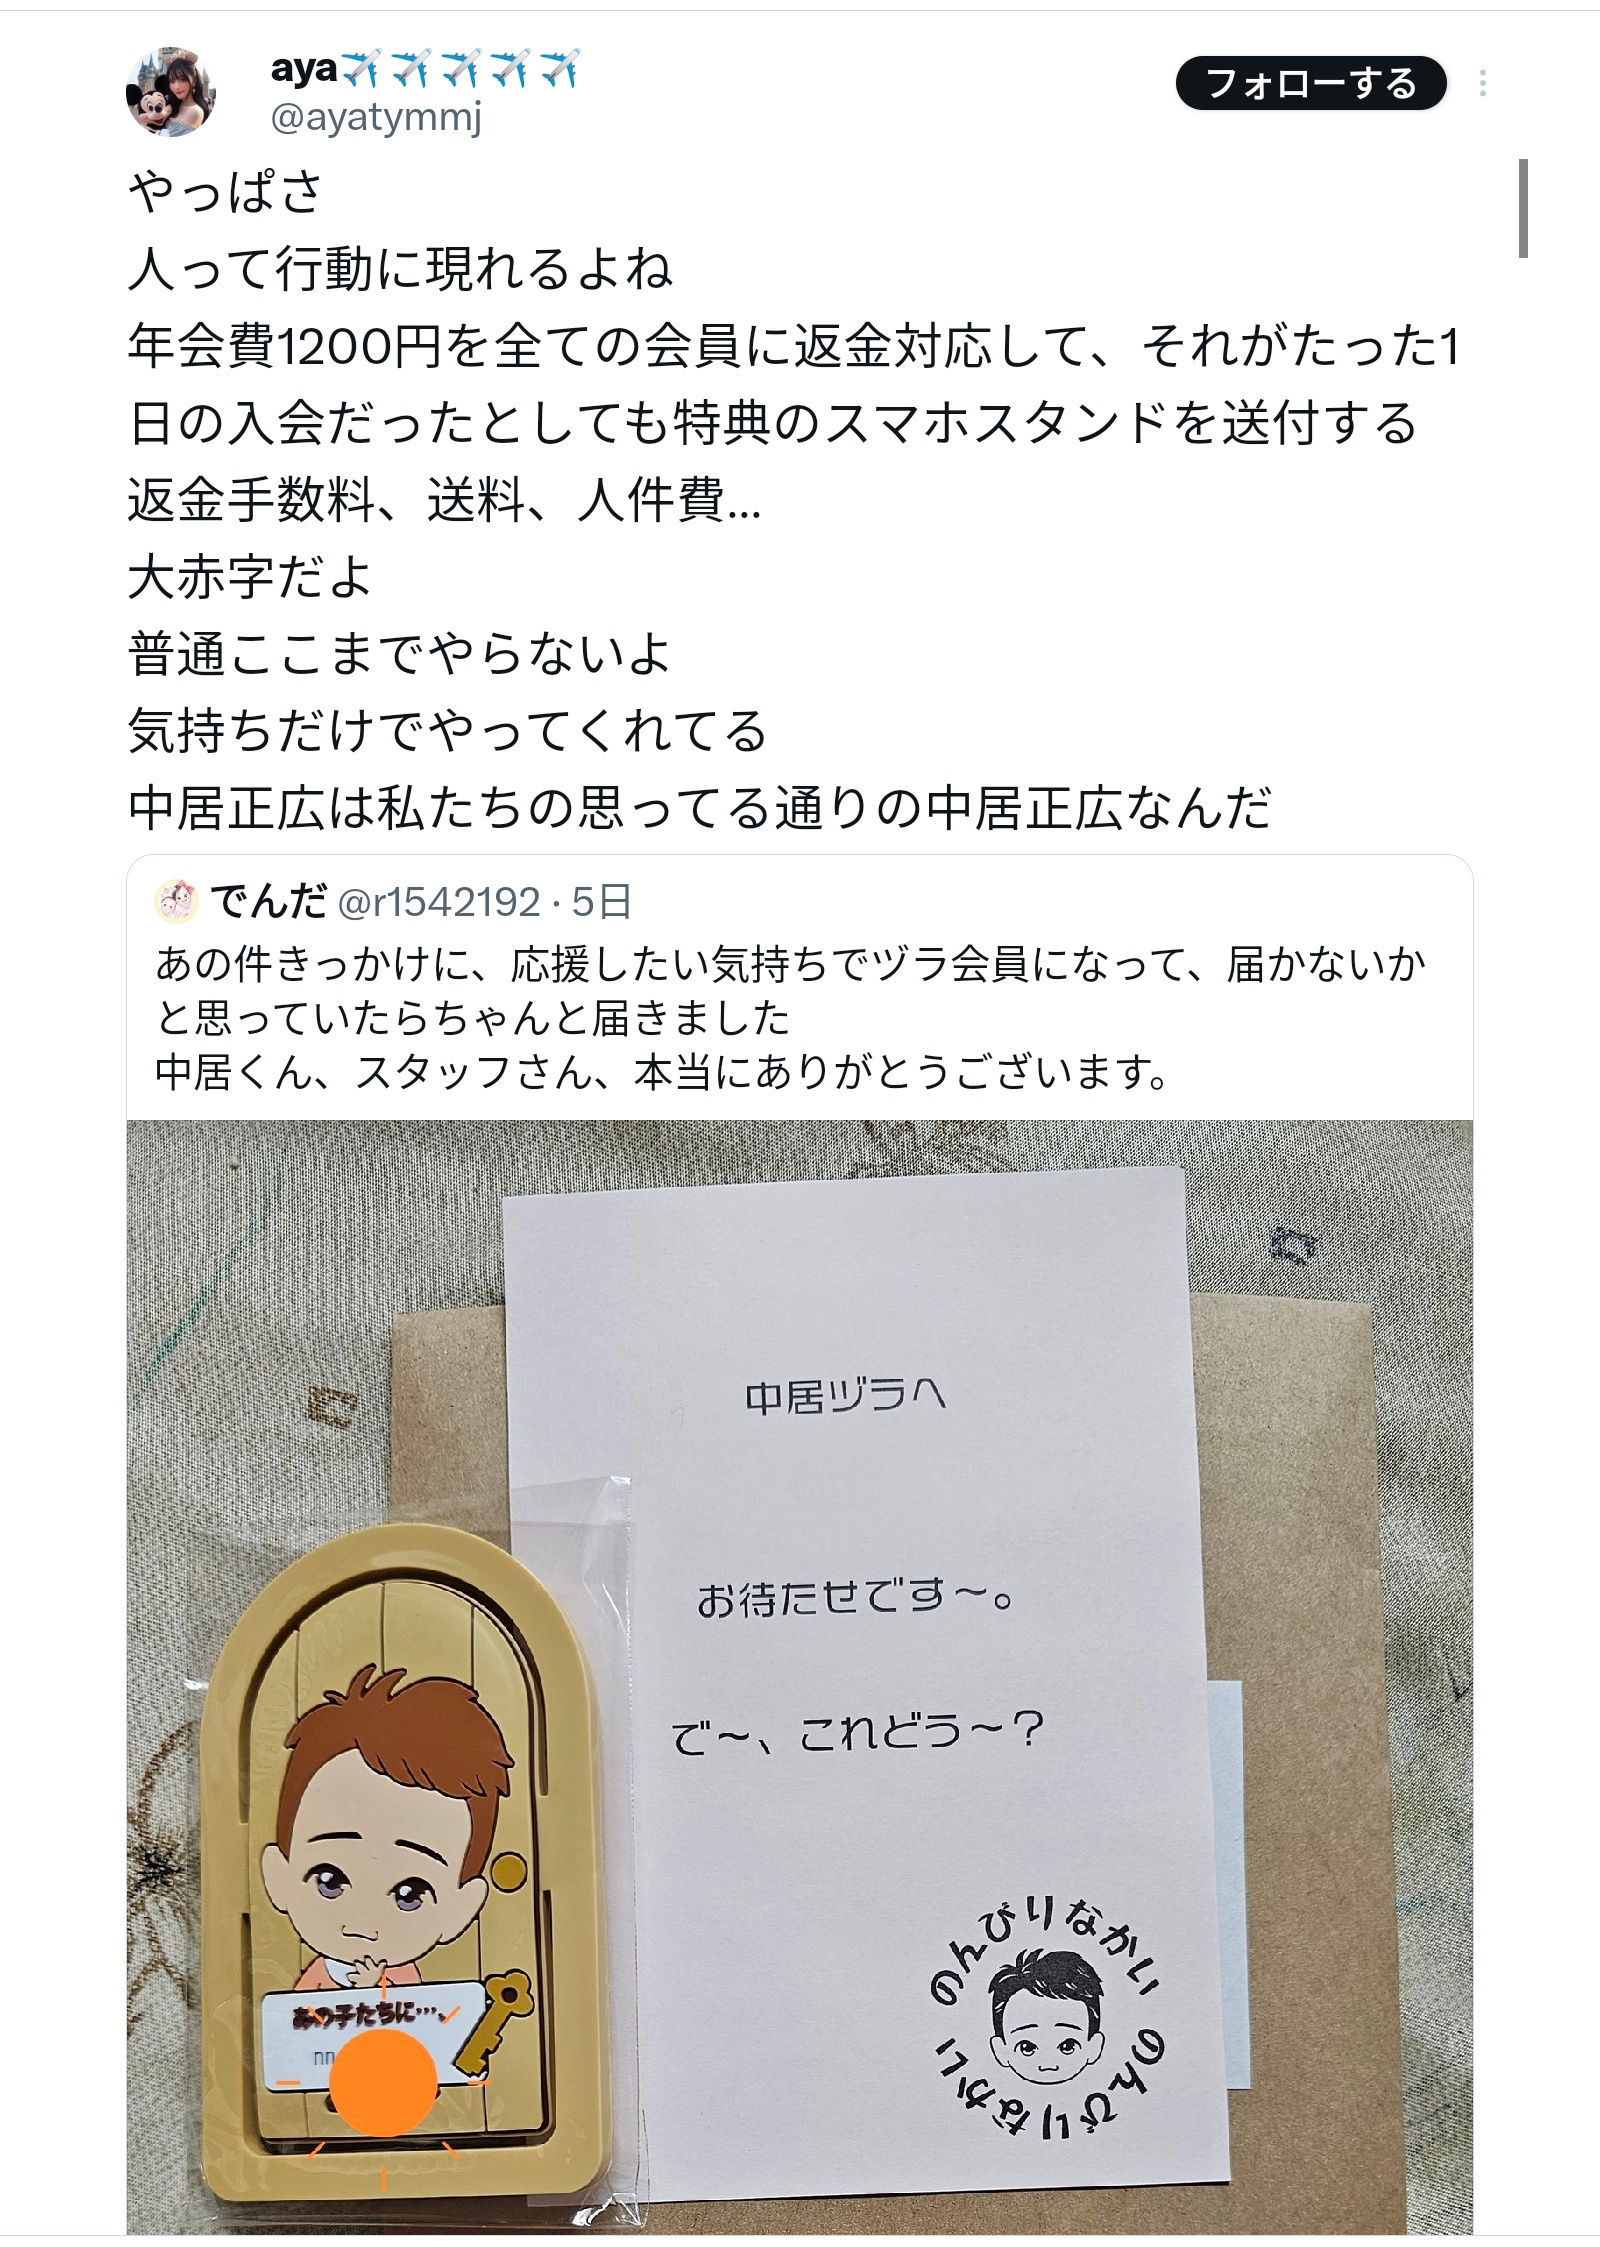 aya✈️✈️✈️✈️✈️
@ayatymmj
フォローする
やっぱさ
人って行動に現れるよね
年会費1200円を全ての会員に返金対応して、それがたった1
日の入会だったとしても特典のスマホスタンドを送付する
返金手数料、送料、人件費...
大赤字だよ
普通ここまでやらないよ
気持ちだけでやってくれてる
中居正広は私たちの思ってる通りの中居正広なんだ
でんだ @r1542192 · 5日
あの件きっかけに、応援したい気持ちでヅラ会員になって、届かないか
と思っていたらちゃんと届きました
中居くん、スタッフさん、本当にありがとうございます。
中居ヅラへ
お待たせです～。
で～、これどう～？
あの子たちに…、
のんびりなかい
のんびりなかい